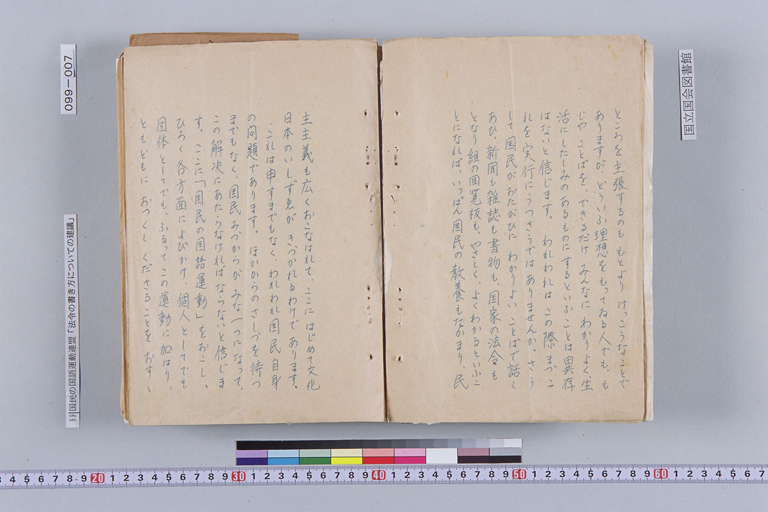 ところを主張するのももとよりけっこうなことで
ありますが、どういふ理想をもってゐる人でも、も
じやことばを、できるだけみんなにわかりよく、生
活にしたしみのあるものにするといふことは異存
はないと信じます。われわれはこの際まづこ
れを実行にうつさうではありませんか。さう
して国民がおたがひにわかりよいことばで話し
あひ、新聞も雑誌も書物も、国家の法令も
となり組の回覧板も、やさしく、よくわかるといふこ
とになれば、いっぱん国民の教養もたかまり、民
主主義も広くおこなはれて、ここにはじめて文化
日本のいしずゑがきづかれるわけであります。
これは申すまでもなく、われわれ国民自身
の問題であります。ほかからのさしづを待つ
までもなく、国民みづからがみな一つになって、
この解決にあたらなければならないと信じま
す。ここに「国民の国語運動」をおこし、
ひろく各方面によびかけ、個人としてでも
団体としてでも、ふるってこの運動に加はり、
ともどもにおつくしくださることをおすゝ
国立国会図書館
099-007
国民の国語運動連盟「法令の書き方についての建議」
20
30
40
50
60